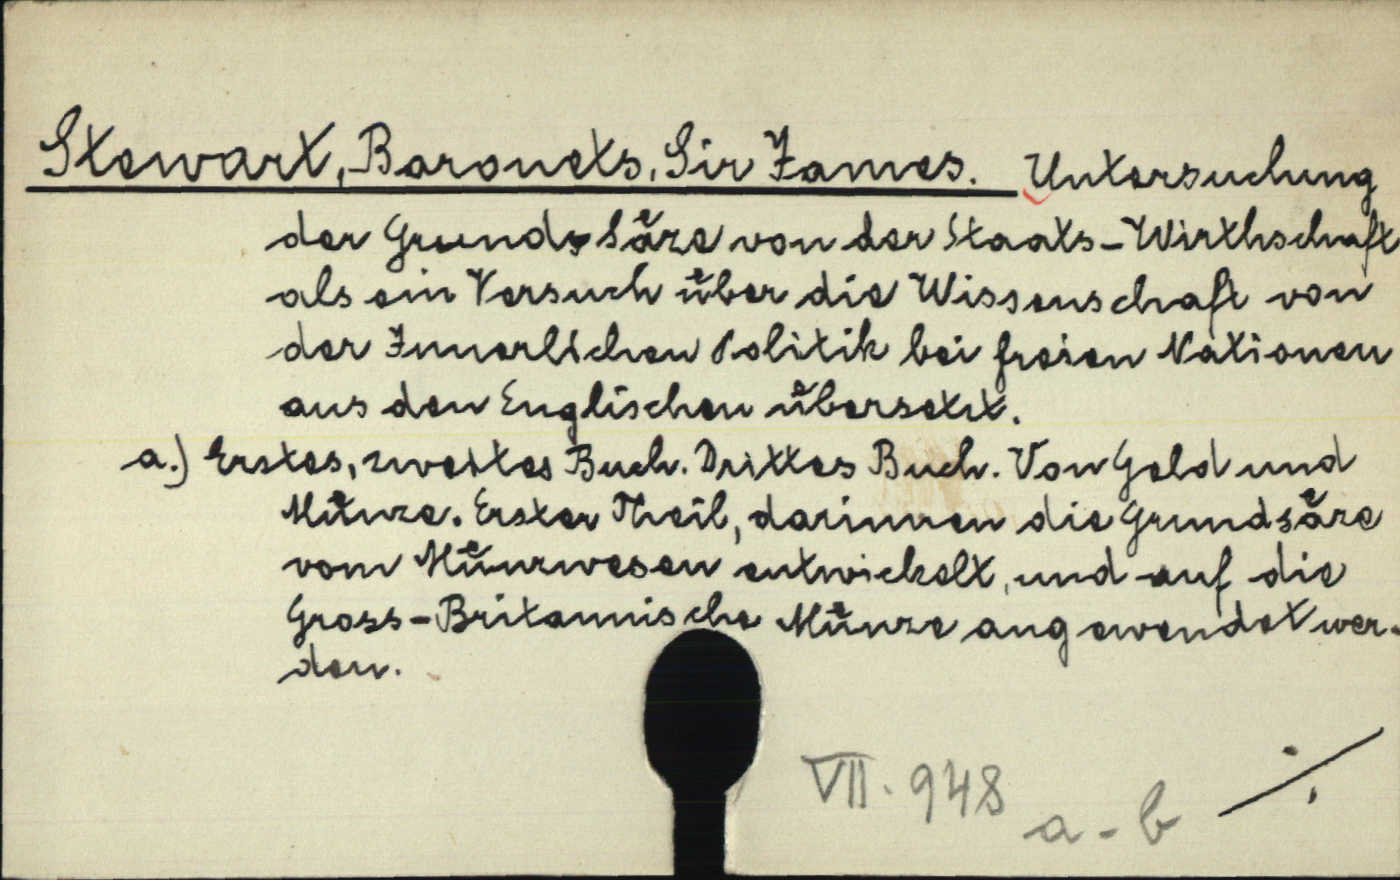 Stewart, Baronets, Sir James. Untersuchung
der Grund-Säze von der Staats-Wirthschaft
als ein Versuch über die Wissenschaft von
der Innerlichen Politik bei freien Nationen
aus den Englischen übersetzt.
a.) Erstes, zweites Buch. Drittes Buch. Von Geld und
Münze. Erster Theil, darinnen die Grundsäze
vom Münzwesen entwickelt, und auf die
Gross-Britannische Münze angewendet wer-
den.
VII. 948
a-b ./.